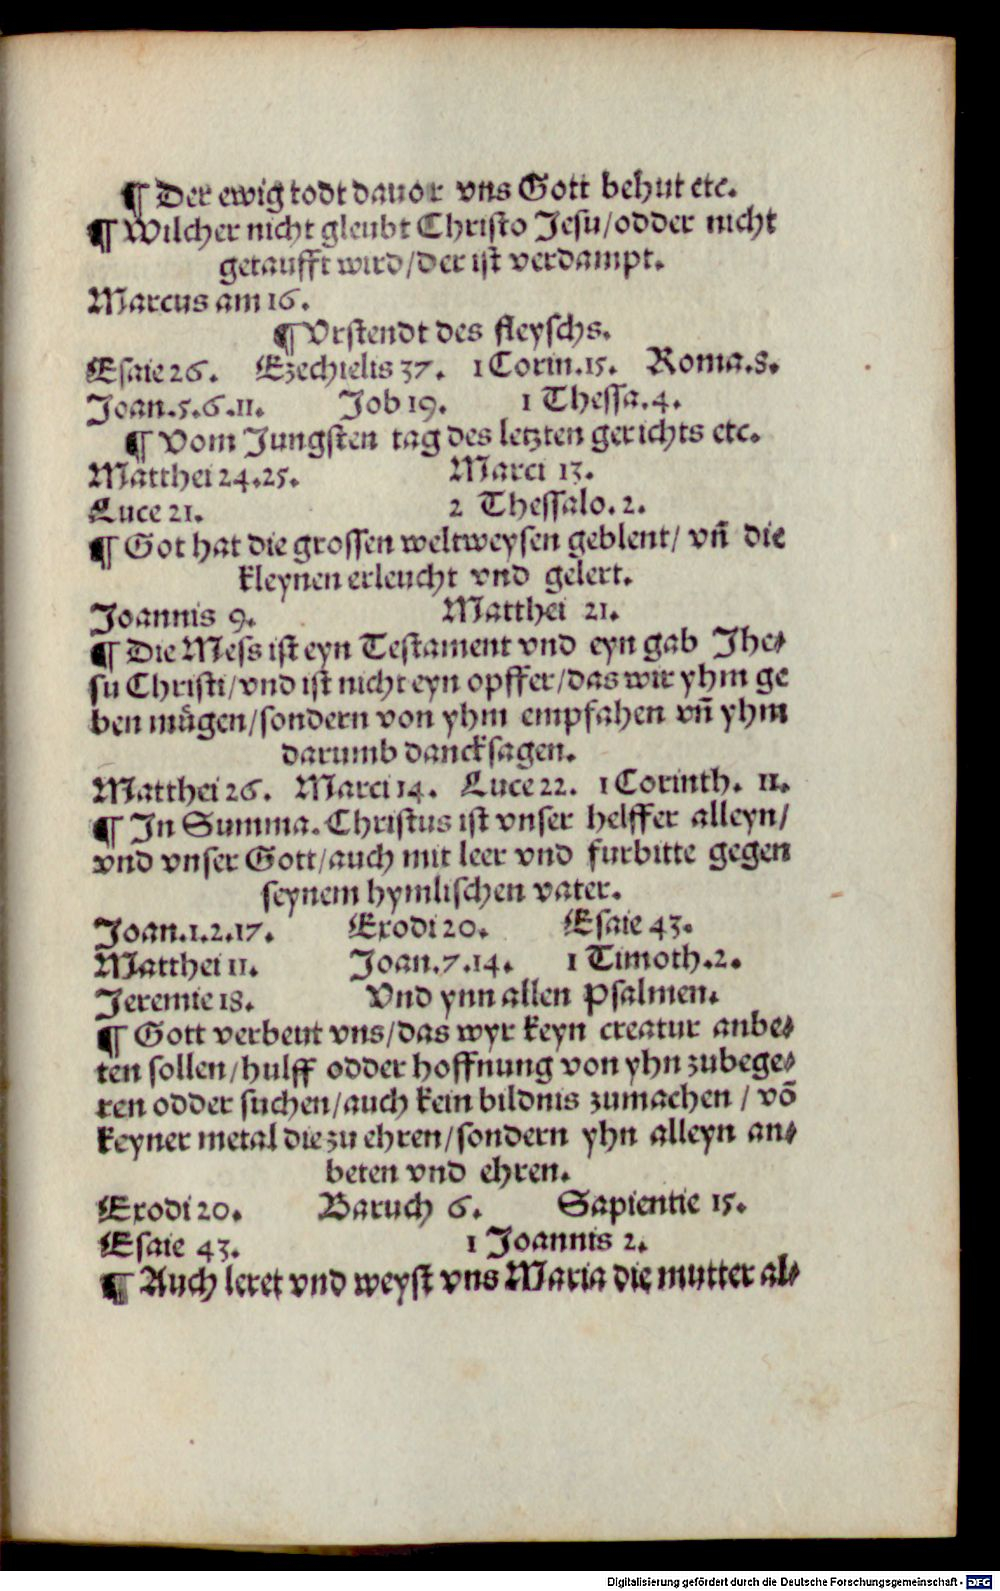 ¶ Der ewig todt dauor vns Gott behut etc.
¶ Wilcher nicht gleubt Christo Jesu/odder nicht
getaufft wird/der ist verdampt.
Marcus am 16.
¶ Vrstendt des fleyschs.
Esaie 26. Ezechielis 37. 1 Corin. 15. Roma. 8.
Joan. 5. 6. 11. Job 19. 1 Thessa. 4.
¶ Vom Jungsten tag des letzten gerichts etc.
Matthei 24. 25. Marci 13.
Luce 21. 2 Thessalo. 2.
¶ Got hat die grossen weltweysen geblent/ vn̄ die
kleynen erleucht vnd gelert.
Joannis 9. Matthei 21.
¶ Die Mess ist eyn Testament vnd eyn gab Jhe⸗
su Christi/vnd ist nicht eyn opffer/das wir yhm ge
ben mu᷑gen/sondern von yhm empfahen vn̄ yhm
darumb dancksagen.
Matthei 26. Marci 14. Luce 22. 1 Corinth. 11.
¶ In Summa. Christus ist vnser helffer alleyn/
vnd vnser Gott/auch mit leer vnd furbitte gegen
seynem hymlischen vater.
Joan. 1. 2. 17. Exodi 20. Esaie 43.
Matthei 11. Joan. 7. 14. 1 Timoth. 2.
Jeremie 18. Vnd ynn allen Psalmen.
¶ Gott verbeut vns/das wyr keyn creatur anbe⸗
ten sollen/hulff odder hoffnung von yhn zubege⸗
ren odder suchen/auch kein bildnis zumachen / vō
keyner metal die zu ehren/sondern yhn alleyn an⸗
beten vnd ehren.
Exodi 20. Baruch 6. Sapientie 15.
Esaie 43. 1 Joannis 2.
¶ Auch leret vnd weyst vns Maria die mutter al⸗
Digitalisierung gefördert durch die Deutsche Forschungsgemeinschaft - DFG